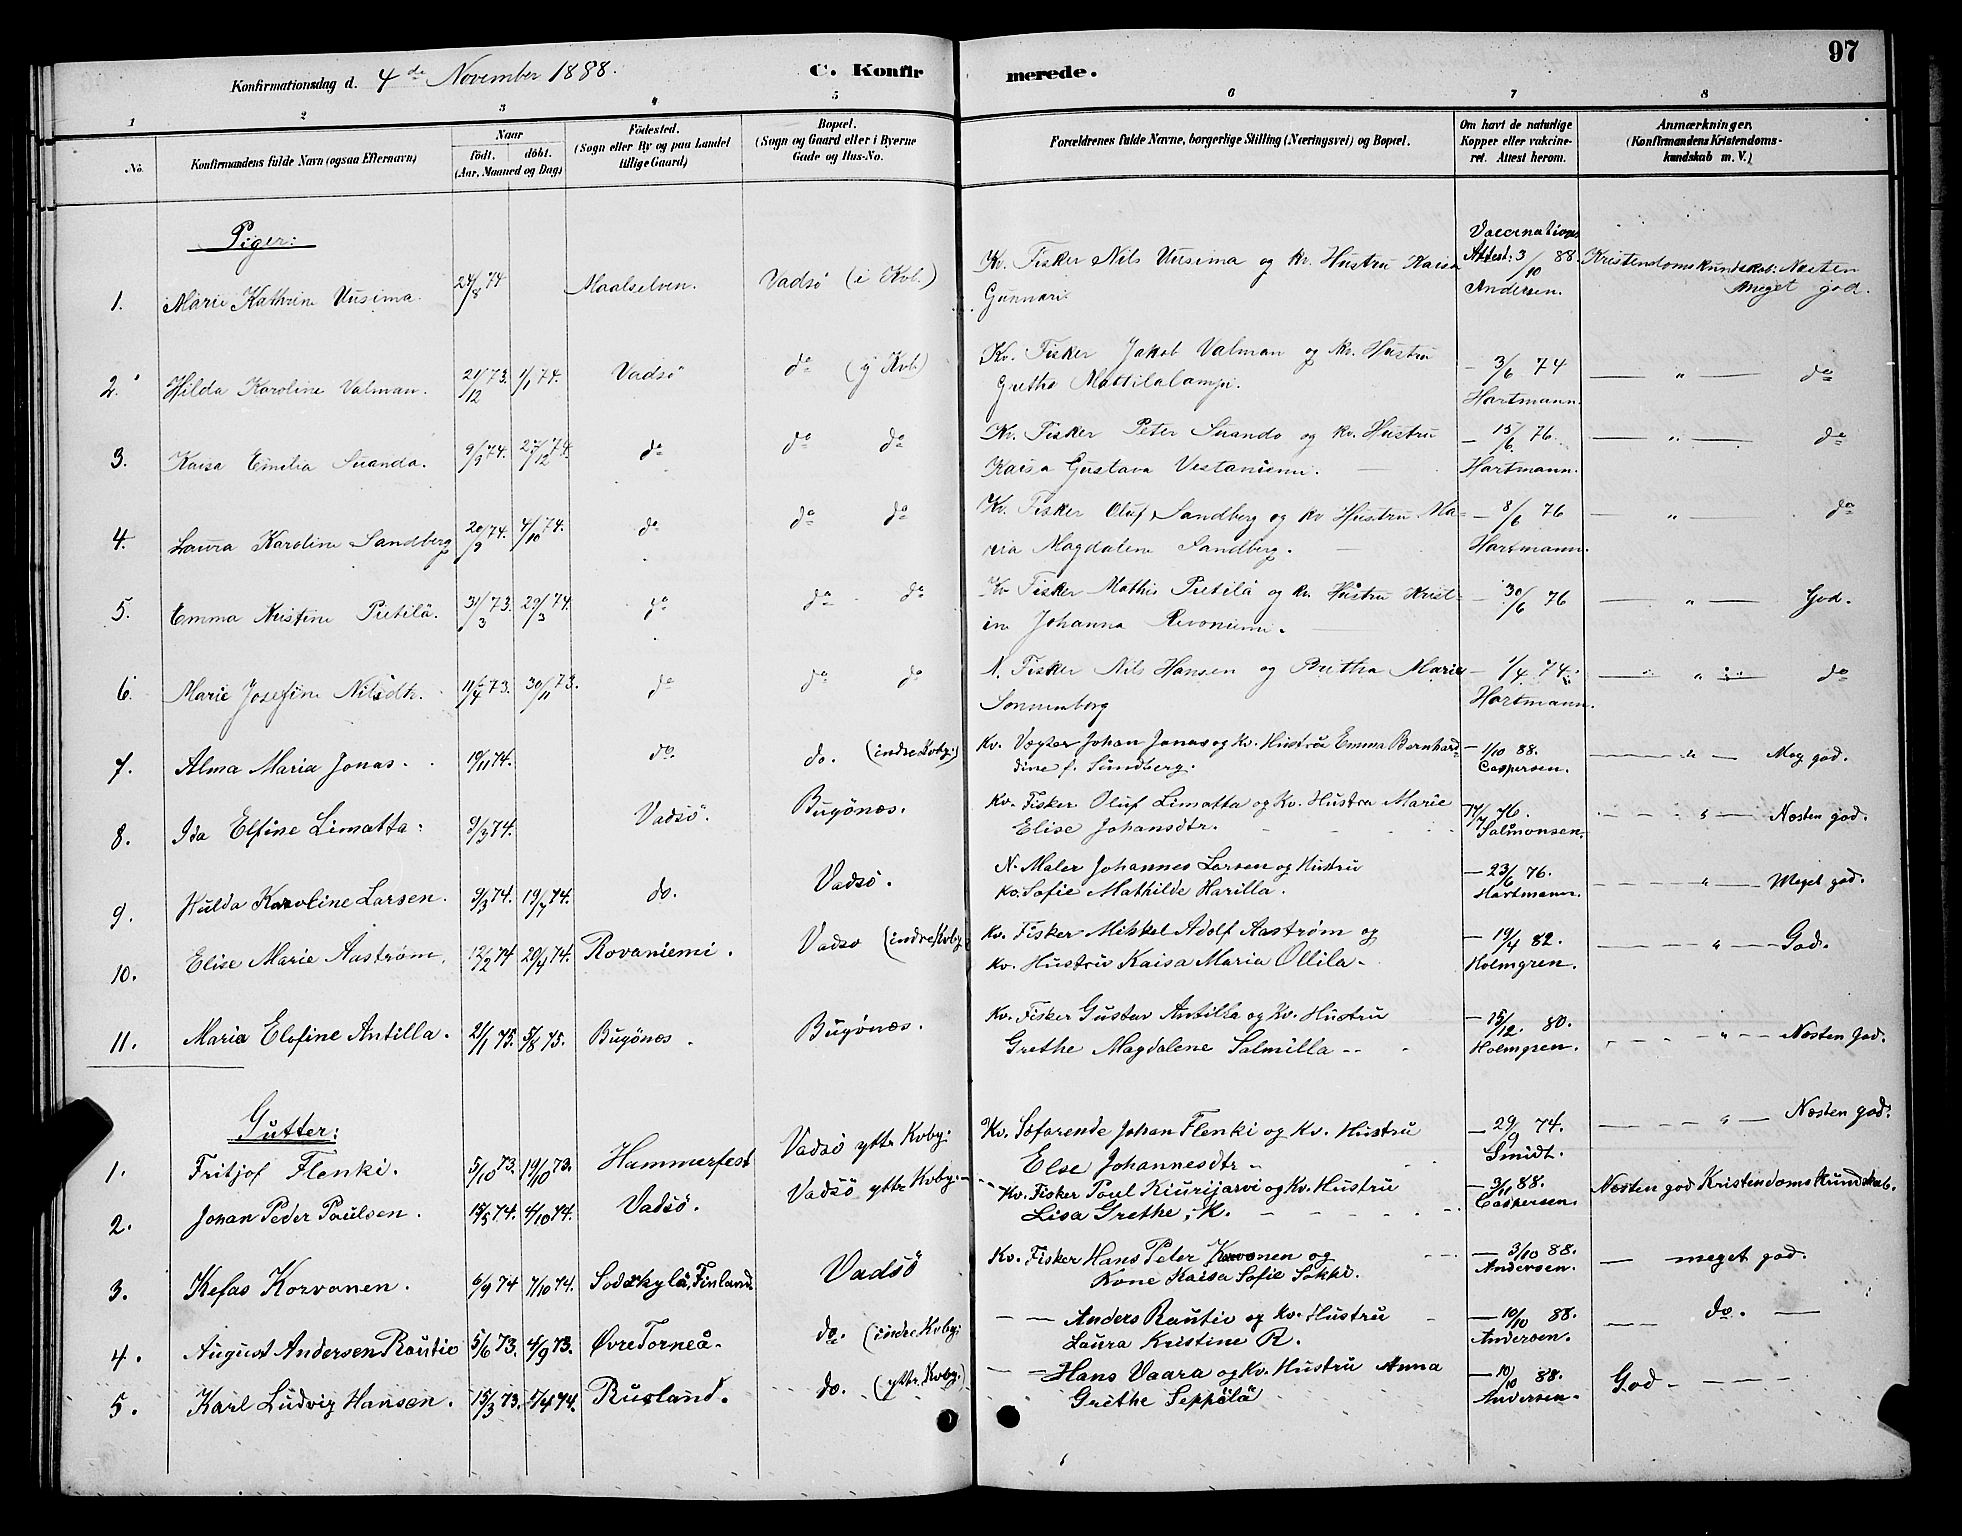 97
Konfirmationsdag d. 4de November 1888.
C. Konfirmerede.
1 2 3 4 5 6 7 8
No.
Konfirmandens fulde Navn (ogsaa Efternavn)
Naar
födt. döbt.
(Aar, Maaned og Dag)
Födested.
(Sogn eller By og paa Landet
tillige Gaard)
Bopæl.
(Sogn og Gaard eller i Byerne
Gade og Hus-No.
Forældrenes fulde Navne, borgerlige Stilling (Næringsvei) og Bopæl.
Om havt de naturlige
Kopper eller vakcine-
ret. Attest herom.
Anmærkninger,
(Konfirmandens Kristendoms-
kundskab m. V.)
Piger:
1. Marie Kathrine Uusima. 24/8 74 Maalselven. Vadsö (i Kvb.) Kv. Fisker Nils Uusima og kv. Hustru Kaisa Vaccinations
Gunnari. Attest: 3/10 88. Andersen. Kristendomskundskab: Næsten
Meget god.
2. Hilda Karoline Valman. 21/12 73. 1/1 74. Vadsö do (y Kvb) Kv. Fisker Jakob Valman og kv. Hustru — 3/6 74 — " — do
Grethe Mattilalampi. Hartmann.
3. Kaisa Emilia Suanda. 9/9 74. 27/12 74. do do do Kv. Fisker Peter Suando og kv. Hustru — 15/6 76. — " — do
Kaisa Gustava Vestaniemi. — Hartmann.
4. Laura Karoline Sandberg 20/9 74. 4/10 74. do do do Kv. Fisker Oluf Sandberg og kv Hustru Ma- — 8/6 76 — " — do
ria Magdalene Sandberg. — Hartmann.
5. Emma Kristine Pietilä. 31/3 73. 29/3 74. do do do Kv Fisker Mathis Pietilä og kv. Hustru Krist- — 30/6 76 — " — God.
ine Johanna Revoniemi. —
6. Marie Josefine Nilsdtr. 11/4 73. 30/11 73. do do do N. Fisker Nils Hansen og Bretha Maria — 1/4 74. — " — do
Sonnenborg Hartmann.
7. Alma Maria Jonas. 19/11 74. do. do. (indre Kvby.) Kv. Vægter Johan Jonas og Kv. Hustru Emma Bernhard- — 1/10 88. — " — Meg. god.
dine f. Sundberg. Caspersen.
8. Ida Elfine Limatta. 9/3 74. Vadsö. Bugönæs. Kv. Fisker Oluf Limatta og Kv. Hustru Marie 17/7 76. — " — Næsten god.
Elise Johansdtr. Salmonsen.
9. Hulda Karoline Larsen. 9/3 74. 19/7 74. do. Vadsö. N. Maler Johannes Larsen og Hustru — 23/6 76. — " — Meget god.
kv. Sofie Mathilde Harilla. Hartmann.
10. Elise Marie Aaström. 12/2 74 20/4 74. Rovaniemi. Vadso (indre Kvby. Kv. Fisker Mikkel Adolf Aaström og — 19/4 82. — " — God.
Kv. Hustru Kaisa Maria Ollila. Holmgren.
11. Maria Elofine Antilla. 21/1 75. 5/8 75. Bugönes. Bugönæs. Kv. Fisker Gustav Antilla og Kv. Hustru — 15/12 80. — " — Næsten God.
Grethe Magdalene Salmilla — Holmgren.
Gutter:
1. Fritjof Flenki. 5/10 73. 19/10 73. Hammerfest Vadsö yttr Kvby. Kv. Söfarende Johan Flenki og Kv. Hustru — 29/9 74. — " — Næsten god.
Else Johannesdtr. Smidt.
2. Johan Peder Paulsen. 18/5 74. 4/10 74. Vadsö. Vadsö yttr Kvby. Kv. Fisker Poul Kiurijarvi og Kv. Hustru — 3/11 88. Næsten god Kristendomskundskab.
Lisa Grethe, K. Caspersen.
3. Kefas Korvanen. 6/9 74 7/10 74. Sodekylä, Finland. Vadsö Kv. Fisker Hans Peter Korvonen og — 3/10 88. — meget god.
Kone Kaisa Sofie Sokki. Andersen.
4. August Andersen Rautio 5/6 73. 4/9 73. ØvreTorneå. do. (indre Kvby. — — Anders Rautio og Kv. Hustru — 10/10 88. — do. —
Laura Kristine R. Andersen.
5. Karl Ludvig Hansen. 15/3 73. 5/4 74. Rusland. do. (yttr. Kvby.) — — Hans Vaara og Kv. Hustru Anna — 10/10 88. God. — —
Grethe Seppälä Andersen.